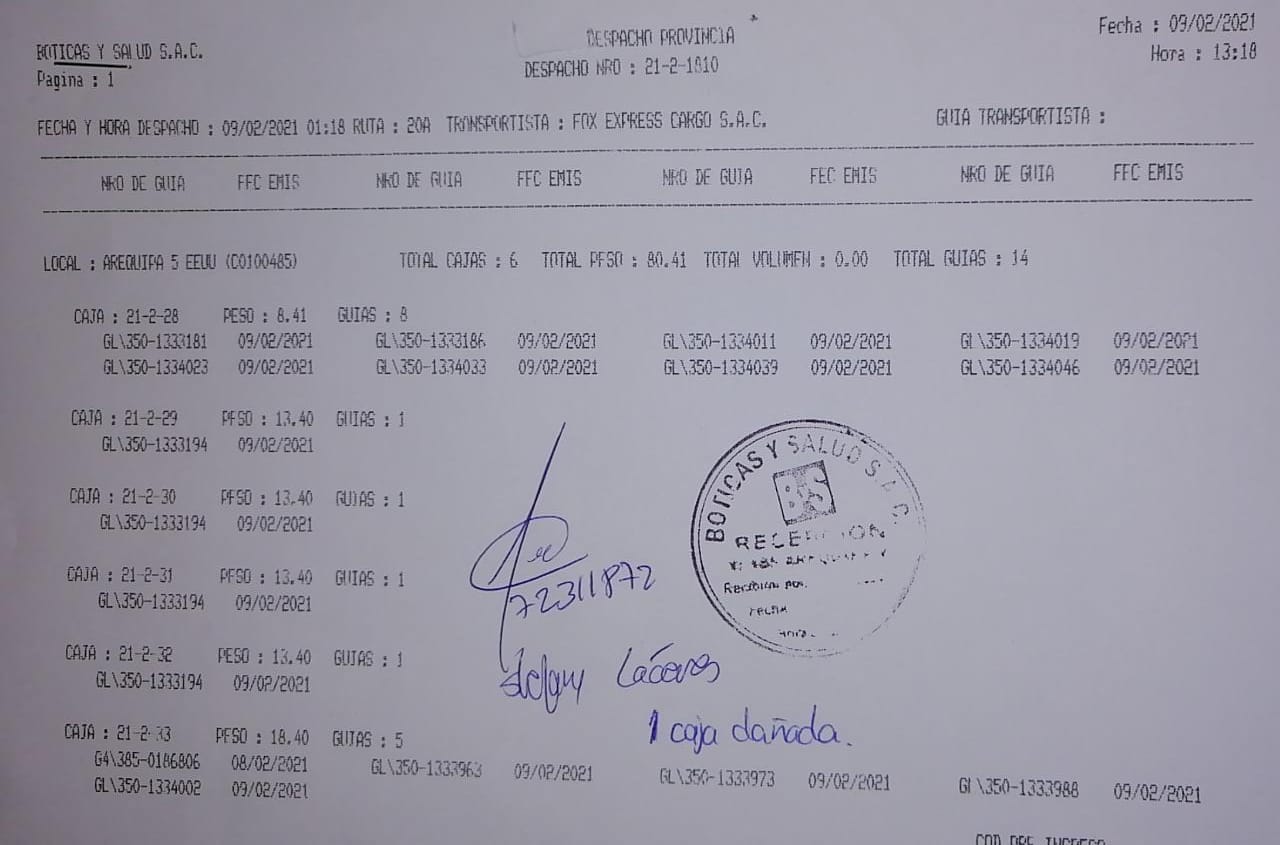 BOTICAS Y SALUD S.A.C.
Pagina : 1
DESPACHO PROVINCIA
DESPACHO NRO : 21-2-1810
Fecha : 09/02/2021
Hora : 13:18
FECHA Y HORA DESPACHO : 09/02/2021 01:18 RUTA : 20A TRANSPORTISTA : FOX EXPRESS CARGO S.A.C. GUIA TRANSPORTISTA :
NRO DE GUIA FEC EMIS NRO DE GUIA FEC EMIS NRO DE GUIA FEC EMIS NRO DE GUIA FEC EMIS
LOCAL : AREQUIPA 5 EEUU (C0100485) TOTAL CAJAS : 6 TOTAL PESO : 80.41 TOTAL VOLUMEN : 0.00 TOTAL GUIAS : 14
CAJA : 21-2-28 PESO : 8.41 GUIAS : 8
GL\350-1333181 09/02/2021 GL\350-1333186 09/02/2021 GL\350-1334011 09/02/2021 GL\350-1334019 09/02/2021
GL\350-1334023 09/02/2021 GL\350-1334033 09/02/2021 GL\350-1334039 09/02/2021 GL\350-1334046 09/02/2021
CAJA : 21-2-29 PESO : 13.40 GUIAS : 1
GL\350-1333194 09/02/2021
CAJA : 21-2-30 PESO : 13.40 GUIAS : 1
GL\350-1333194 09/02/2021
CAJA : 21-2-31 PESO : 13.40 GUIAS : 1
GL\350-1333194 09/02/2021
CAJA : 21-2-32 PESO : 13.40 GUIAS : 1
GL\350-1333194 09/02/2021
CAJA : 21-2-33 PESO : 18.40 GUIAS : 5
G4\385-0186806 08/02/2021 GL\350-1333963 09/02/2021 GL\350-1333973 09/02/2021 GL\350-1333988 09/02/2021
GL\350-1334002 09/02/2021
BOTICAS Y SALUD S.A.C.
BS
RECEPCION
Recibido por.
FECHA
Hora
72311872
Cáceres
1 caja dañada.